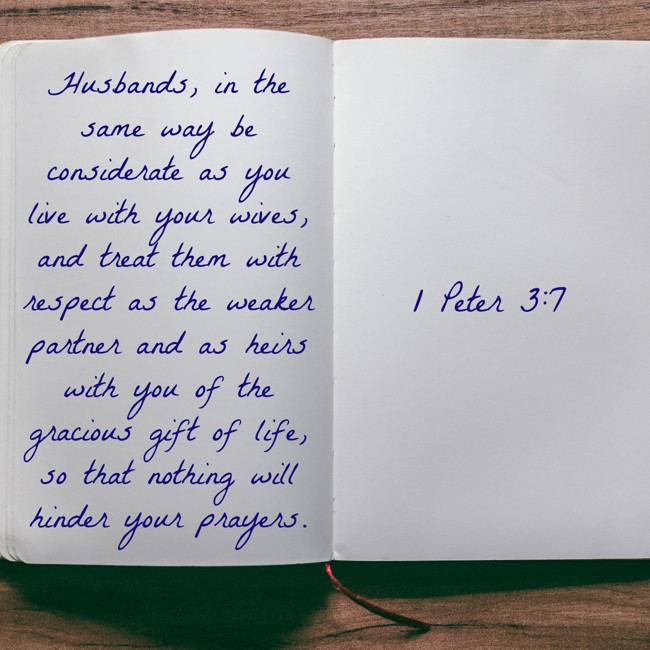 Husbands, in the
same way be
considerate as you
live with your wives,
and treat them with
respect as the weaker
partner and as heirs
with you of the
gracious gift of life,
so that nothing will
hinder your prayers.
1 Peter 3:7